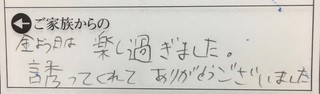 ご家族からの
金よう日は 楽し過ぎました。
誘ってくれて ありがとうございました